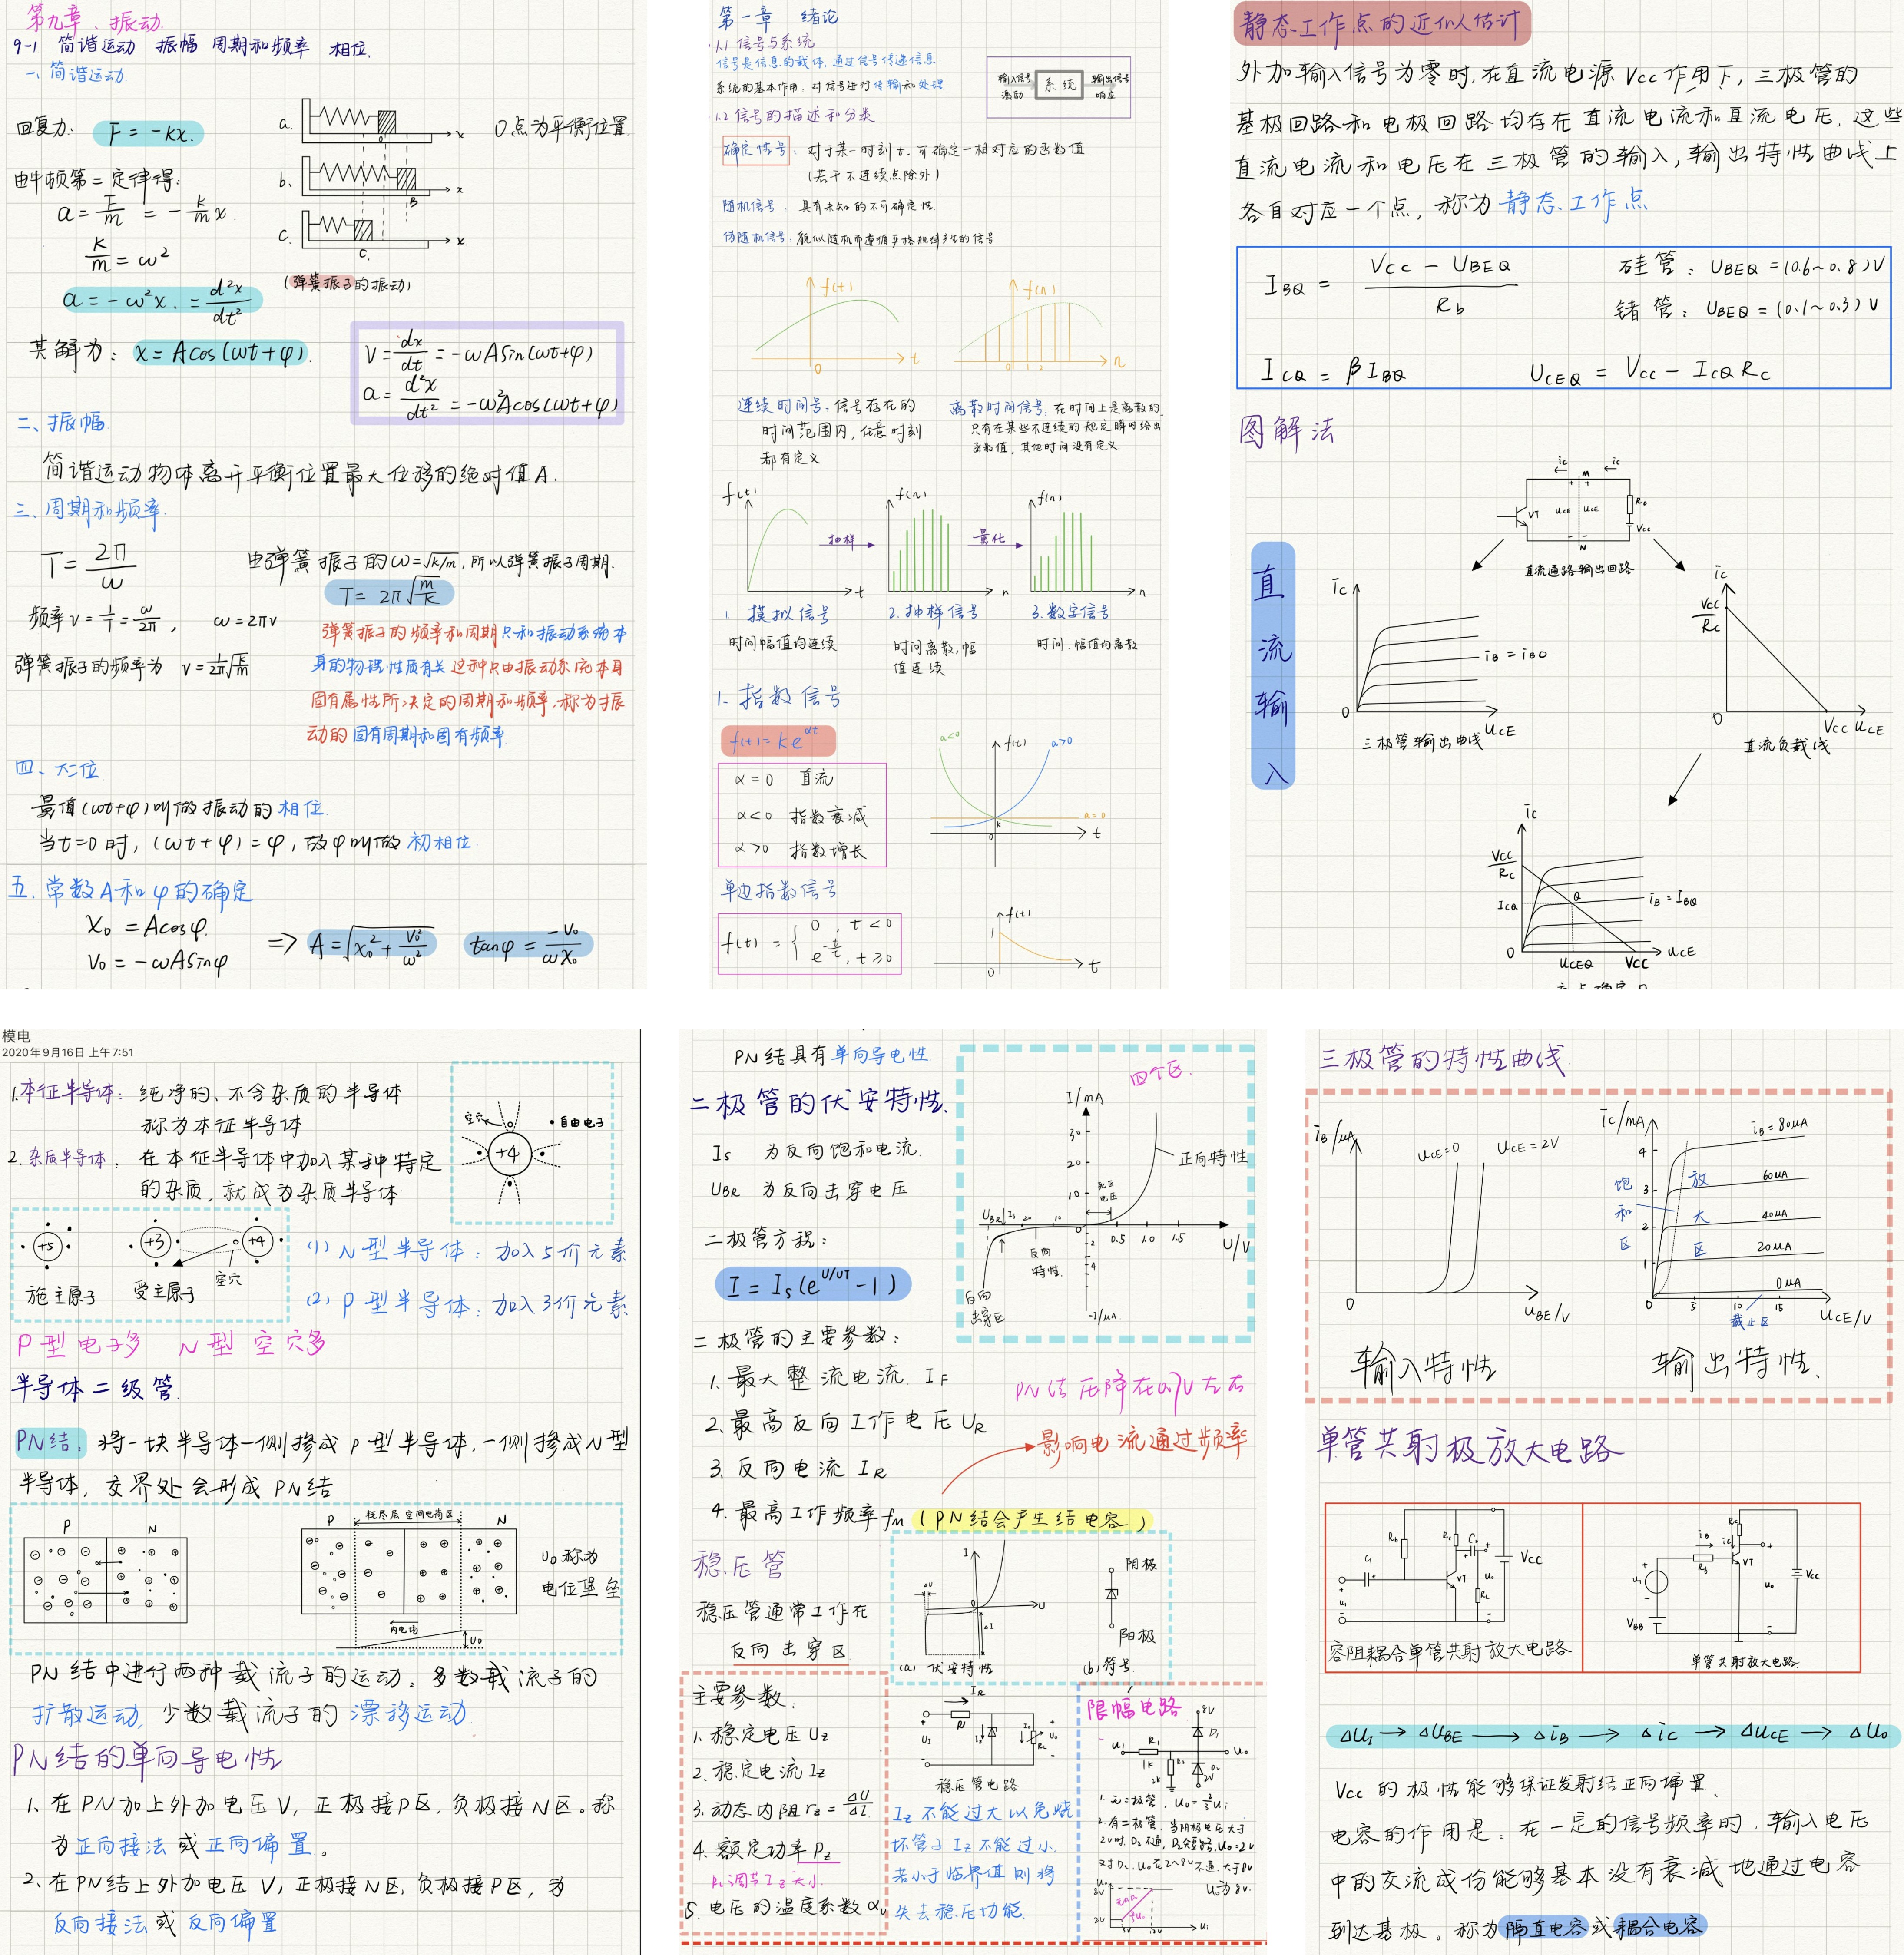 第九章、振动.
9-1 简谐运动 振幅 周期和频率 相位.
一、简谐运动.
回复力: F = -kx.
a.
x
O点为平衡位置.
由牛顿第二定律得:
b.
B
x
a = F/m = -k/m x.
c.
C.
x
k/m = ω²
(弹簧振子的振动)
a = -ω²x. = d²x/dt²
其解为: x = Acos(ωt+φ).
V = dx/dt = -ωASin(ωt+φ)
a = d²x/dt² = -ω²Acos(ωt+φ)
二、振幅.
简谐运动物体离开平衡位置最大位移的绝对值A.
三、周期和频率.
T = 2π/ω
由弹簧振子的ω=√k/m,所以弹簧振子周期.
T = 2π√m/k
频率ν = 1/T = ω/2π, ω = 2πν
弹簧振子的频率和周期只和振动系统本
弹簧振子的频率为 ν = 1/2π √k/m
身的物理性质有关 这种只由振动系统本身
固有属性所决定的周期和频率,称为振
动的固有周期和固有频率.
四、相位
量值(ωt+φ)叫做振动的相位.
当t=0时, (ωt+φ) = φ, 故φ叫做初相位.
五.常数A和φ的确定
X₀ = Acosφ.
V₀ = -ωASinφ
=> A = √X₀² + V₀²/ω² tanφ = -V₀/ωX₀
第一章 绪论
1.1 信号与系统
信号是信息的载体,通过信号传递信息.
系统的基本作用. 对信号进行传输和处理
输入信号 激励
系统
输出信号 响应
1.2 信号的描述和分类
确定信号: 对于某一时刻t.可确定一相对应的函数值
(若干不连续点除外)
随机信号: 具有未知的不可确定性.
伪随机信号.貌似随机而遵循严格规律产生的信号
f(t)
0
t
f(n)
0 1 2
n
连续时间号.信号存在的
时间范围内,任意时刻
都有定义
离散时间信号.在时间上是离散的,
只有在某些不连续的规定瞬时给出
函数值,其他时间没有定义
f(t)
t
抽样
f(n)
n
量化
f(n)
n
1. 模拟信号
时间幅值均连续
2.抽样信号
时间离散,幅
值连续
3.数字信号
时间.幅值均离散
1. 指数信号
f(t) = k e^αt
α = 0 直流
α<0 指数衰减
α>0 指数增长
a<0
f(t)
a>0
a=0
k
0
t
单边指数信号
f(t) = { 0 , t < 0
e^-t/τ , t ≥ 0
f(t)
1
0
t
静态工作点的近似估计
外加输入信号为零时,在直流电源Vcc作用下,三极管的
基极回路和电极回路均存在直流电流和直流电压,这些
直流电流和电压在三极管的输入,输出特性曲线上
各自对应一个点,称为静态工作点
I BQ = Vcc - UBEQ / Rb
硅管: UBEQ = (0.6~0.8)V
锗管: UBEQ = (0.1~0.3)V
I CQ = βI BQ UCEQ = Vcc - ICQ Rc
图解法
ic
M
ic
VT
uCE
uCE
Rc
Vcc
N
直流通路输出回路
直流输入
ic
iB = iB0
0
uCE
三极管输出曲线
ic
Vcc/Rc
0
Vcc uCE
直流负载线
ic
Vcc/Rc
ICQ
Q
iB = IBQ
0
UCEQ
Vcc
uCE
模电
2020年9月16日 上午7:51
1.本征半导体: 纯净的、不含杂质的半导体
称为本征半导体
2.杂质半导体. 在本征半导体中加入某种特定
的杂质,就成为杂质半导体
空穴
自由电子
+4
+5
施主原子
+3
受主原子
+4
空穴
(1) N型半导体: 加入5价元素
(2) P型半导体: 加入3价元素
P型电子多 N型空穴多
半导体二级管.
PN结: 将一块半导体一侧掺成P型半导体,一侧掺成N型
半导体,交界处会形成PN结
P N
P 耗尽层 空间电荷区 N
内电场
U₀
U₀称为
电位堡垒
PN结中进行两种载流子的运动。多数载流子的
扩散运动,少数载流子的漂移运动
PN结的单向导电性
1、在PN加上外加电压V,正极接P区,负极接N区。称
为正向接法或正向偏置。
2、在PN结上外加电压V,正极接N区,负极接P区,为
反向接法或反向偏置
PN结具有单向导电性
二极管的伏安特性.
Is 为反向饱和电流.
UBR 为反向击穿电压
二极管方程:
I = Is(e^U/UT - 1)
四个区.
I/mA
30
20
10
死区电压
正向特性
UBR
Is
20 10
0
0.5 1.0 1.5
U/V
反向特性
2
4
反向击穿区
-I/μA
二极管的主要参数:
1. 最大整流电流 IF
2.最高反向工作电压UR
3. 反向电流 IR
4. 最高工作频率fm (PN结会产生结电容)
PN结压降在0.7V左右
影响电流通过频率
稳压管
稳压管通常工作在
反向击穿区
I
ΔU
U
ΔI
(a) 伏安特性
阴极
阳极
(b) 符号
主要参数.
1. 稳定电压Uz
2. 稳定电流Iz
3. 动态内阻rz = ΔU/ΔI
4. 额定功率Pz
RL调节Iz大小.
5. 电压的温度系数αu
IR
R
UI
Iz
Io
RL
Uo
稳压管电路
Iz不能过大以免烧
坏管子 Iz不能过小.
若小于临界值则将
失去稳压功能.
限幅电路
8V
D1
u1
R1
1k
R2
2k
D2
2V
uo
1.无二极管, uo = 2/3 ui
2.有二极管,当阴极电压大于
三极管的特性曲线
iB/μA
uCE=0
uCE=2V
0
uBE/V
输入特性
ic/mA
4
3
2
1
0
iB=80μA
60μA
40μA
20μA
0μA
饱和区
放大区
截止区
5 10 15
uCE/V
输出特性.
单管共射极放大电路
Rb
Rc
C1
C2
VT
RL
uo
VCC
容阻耦合单管共射放大电路
iB
Rb
ic
Rc
VT
VBB
uo
Vcc
单管共射放大电路
ΔUI → ΔUBE → ΔiB → Δic → ΔUCE → ΔUo
Vcc的极性能够保证发射结正向偏置.
电容的作用是: 在一定的信号频率时.输入电压
中的交流成份能够基本没有衰减地通过电容
到达基极。称为隔直电容或耦合电容